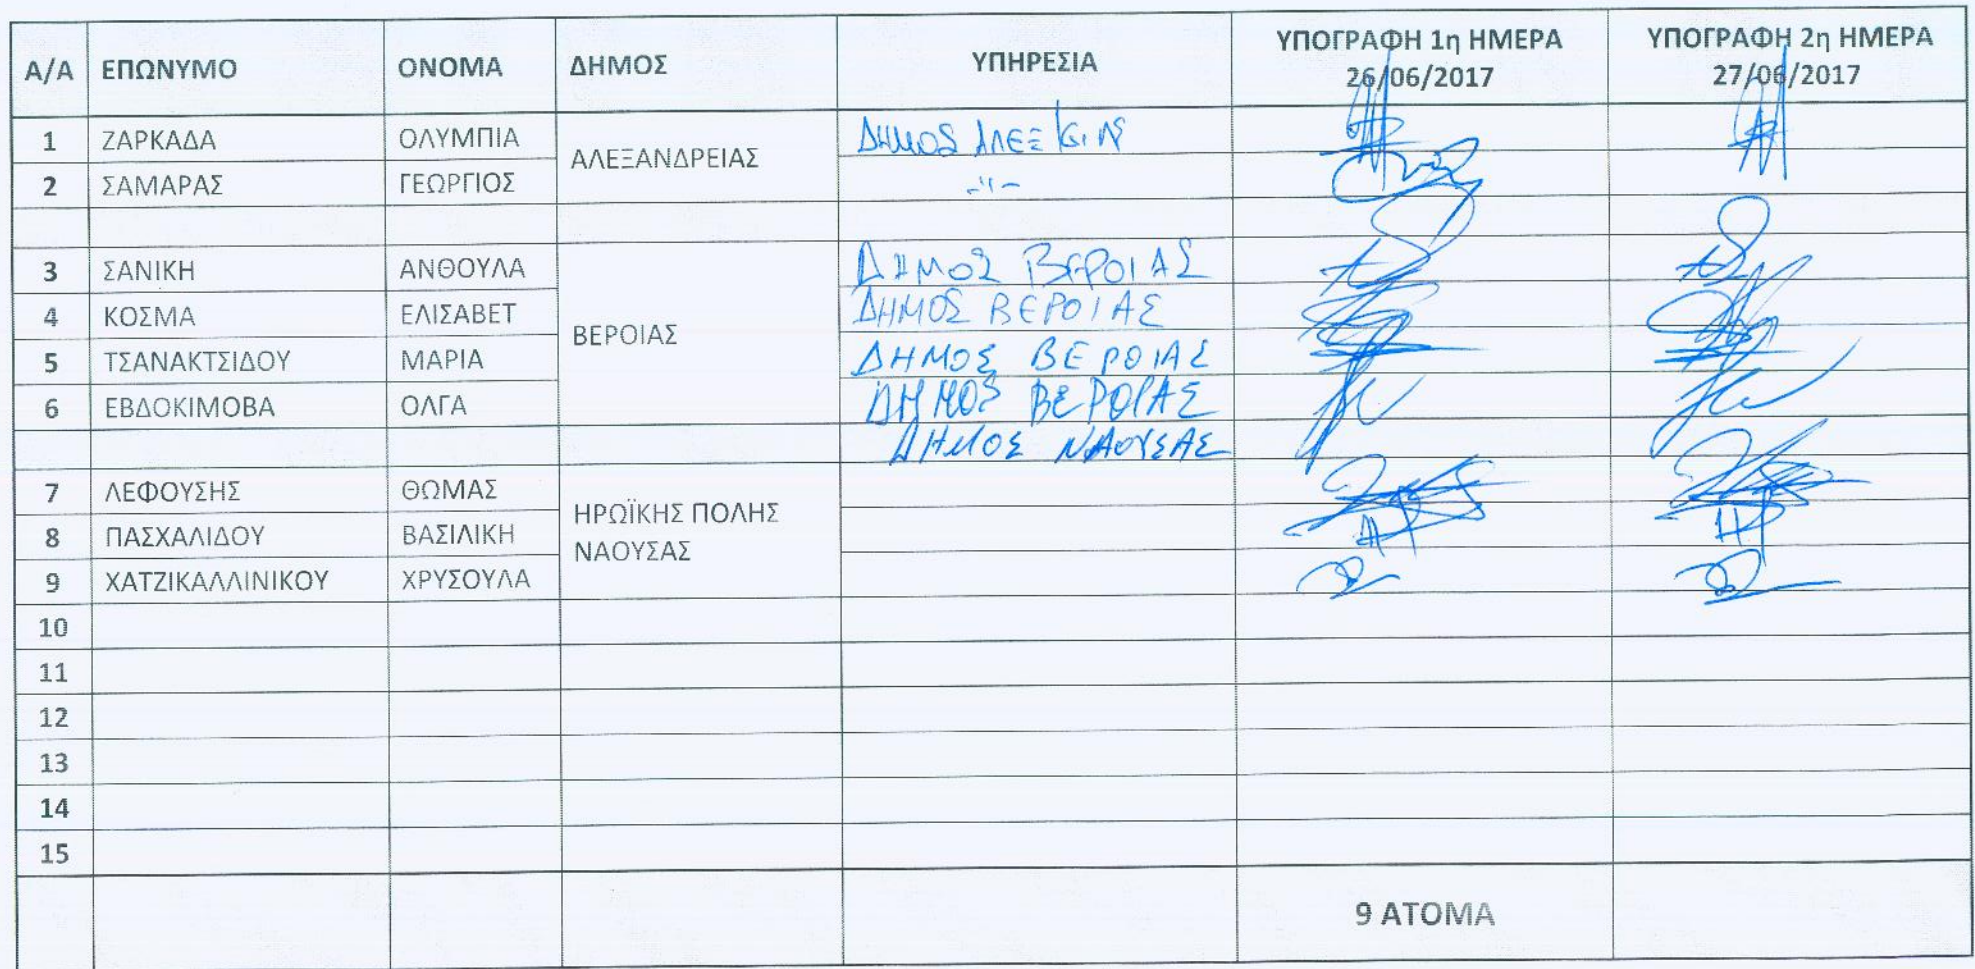 Α/Α ΕΠΩΝΥΜΟ ΟΝΟΜΑ ΔΗΜΟΣ ΥΠΗΡΕΣΙΑ ΥΠΟΓΡΑΦΗ 1η ΗΜΕΡΑ 26/06/2017 ΥΠΟΓΡΑΦΗ 2η ΗΜΕΡΑ 27/06/2017
1 ΖΑΡΚΑΔΑ ΟΛΥΜΠΙΑ ΑΛΕΞΑΝΔΡΕΙΑΣ ΔΗΜΟΣ
2 ΣΑΜΑΡΑΣ ΓΕΩΡΓΙΟΣ -"-
3 ΣΑΝΙΚΗ ΑΝΘΟΥΛΑ ΒΕΡΟΙΑΣ ΔΗΜΟΣ ΒΕΡΟΙΑΣ
4 ΚΟΣΜΑ ΕΛΙΣΑΒΕΤ ΔΗΜΟΣ ΒΕΡΟΙΑΣ
5 ΤΣΑΝΑΚΤΣΙΔΟΥ ΜΑΡΙΑ ΔΗΜΟΣ ΒΕΡΟΙΑΣ
6 ΕΒΔΟΚΙΜΟΒΑ ΟΛΓΑ ΔΗΜΟΣ ΒΕΡΟΙΑΣ
ΔΗΜΟΣ ΝΑΟΥΣΑΣ
7 ΛΕΦΟΥΣΗΣ ΘΩΜΑΣ ΗΡΩΪΚΗΣ ΠΟΛΗΣ ΝΑΟΥΣΑΣ
8 ΠΑΣΧΑΛΙΔΟΥ ΒΑΣΙΛΙΚΗ
9 ΧΑΤΖΙΚΑΛΛΙΝΙΚΟΥ ΧΡΥΣΟΥΛΑ
10
11
12
13
14
15
9 ΑΤΟΜΑ